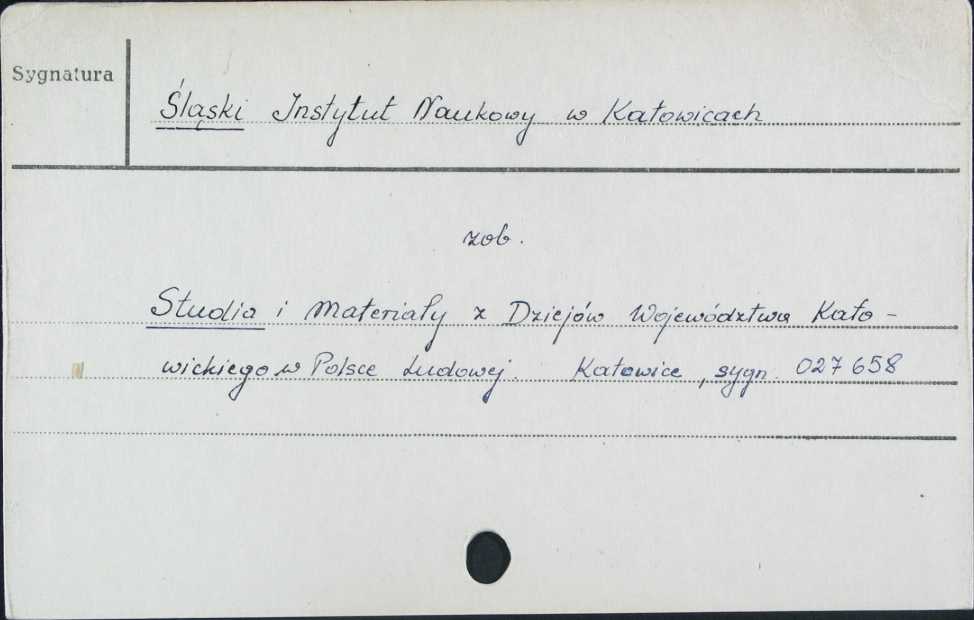 Sygnatura
Śląski Instytut Naukowy w Katowicach
zob.
Studia i Materiały z Dziejów Województwa Kato-
wickiego w Polsce Ludowej. Katowice, sygn. 027658